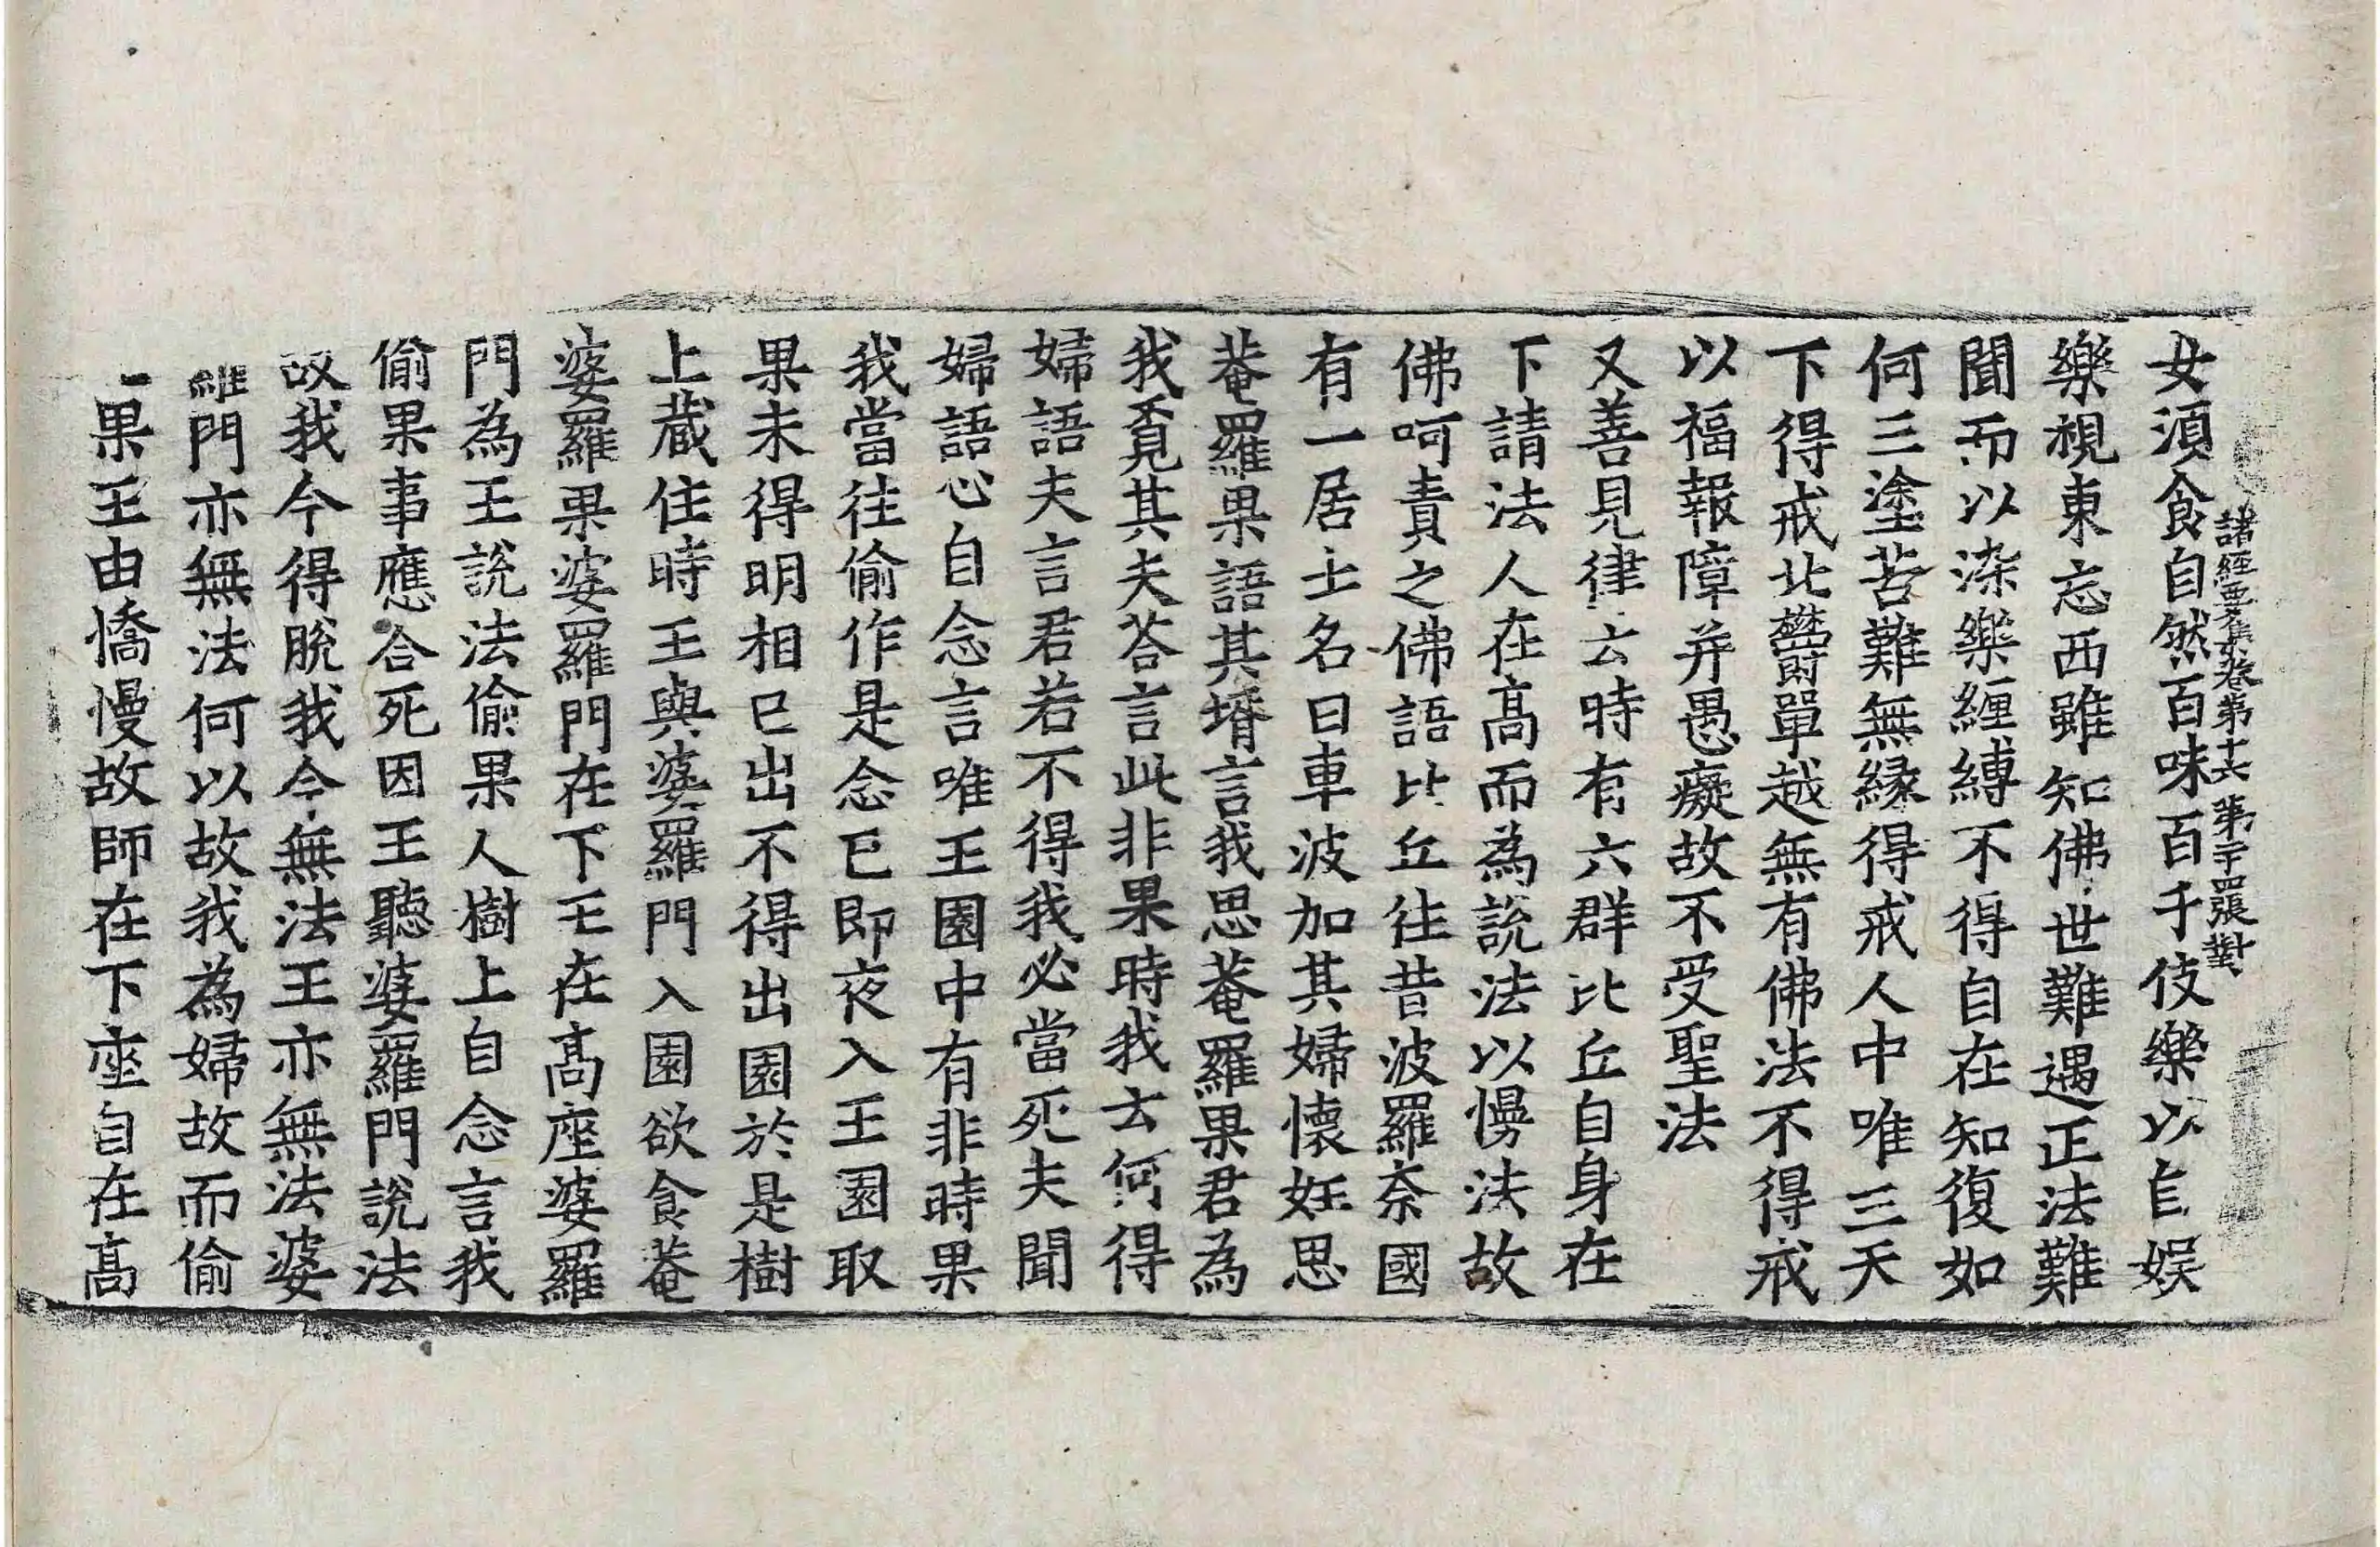 女湏食自然百味百千伎樂以自娱
諸經要集卷第十六 第二十四張 對
樂視東忘西雖知佛世難遇正法難
聞而以染樂纒縛不得自在知復如
何三塗苦難無縁得戒人中唯三天
下得戒北欝單越無有佛法不得戒
以福報障并愚癡故不受聖法
又善見律云時有六群比丘自身在
下請法人在髙而為說法以慢法故
佛呵責之佛語比丘往昔波羅奈國
有一居士名曰車波加其婦懷妊思
菴羅果語其壻言我思菴羅果君為
我覔其夫荅言此非果時我云何得
婦語夫言君若不得我必當死夫聞
婦語心自念言唯王園中有非時果
我當往偷作是念已即夜入王園取
果未得明相已出不得出園於是樹
上蔵住時王與婆羅門入園欲食菴
婆羅果婆羅門在下王在髙座婆羅
門為王說法偷果人樹上自念言我
偷果事應合死因王聽婆羅門說法
故我今得脫我今無法王亦無法婆
羅門亦無法何以故我為婦故而偷
一果王由憍慢故師在下座自在髙